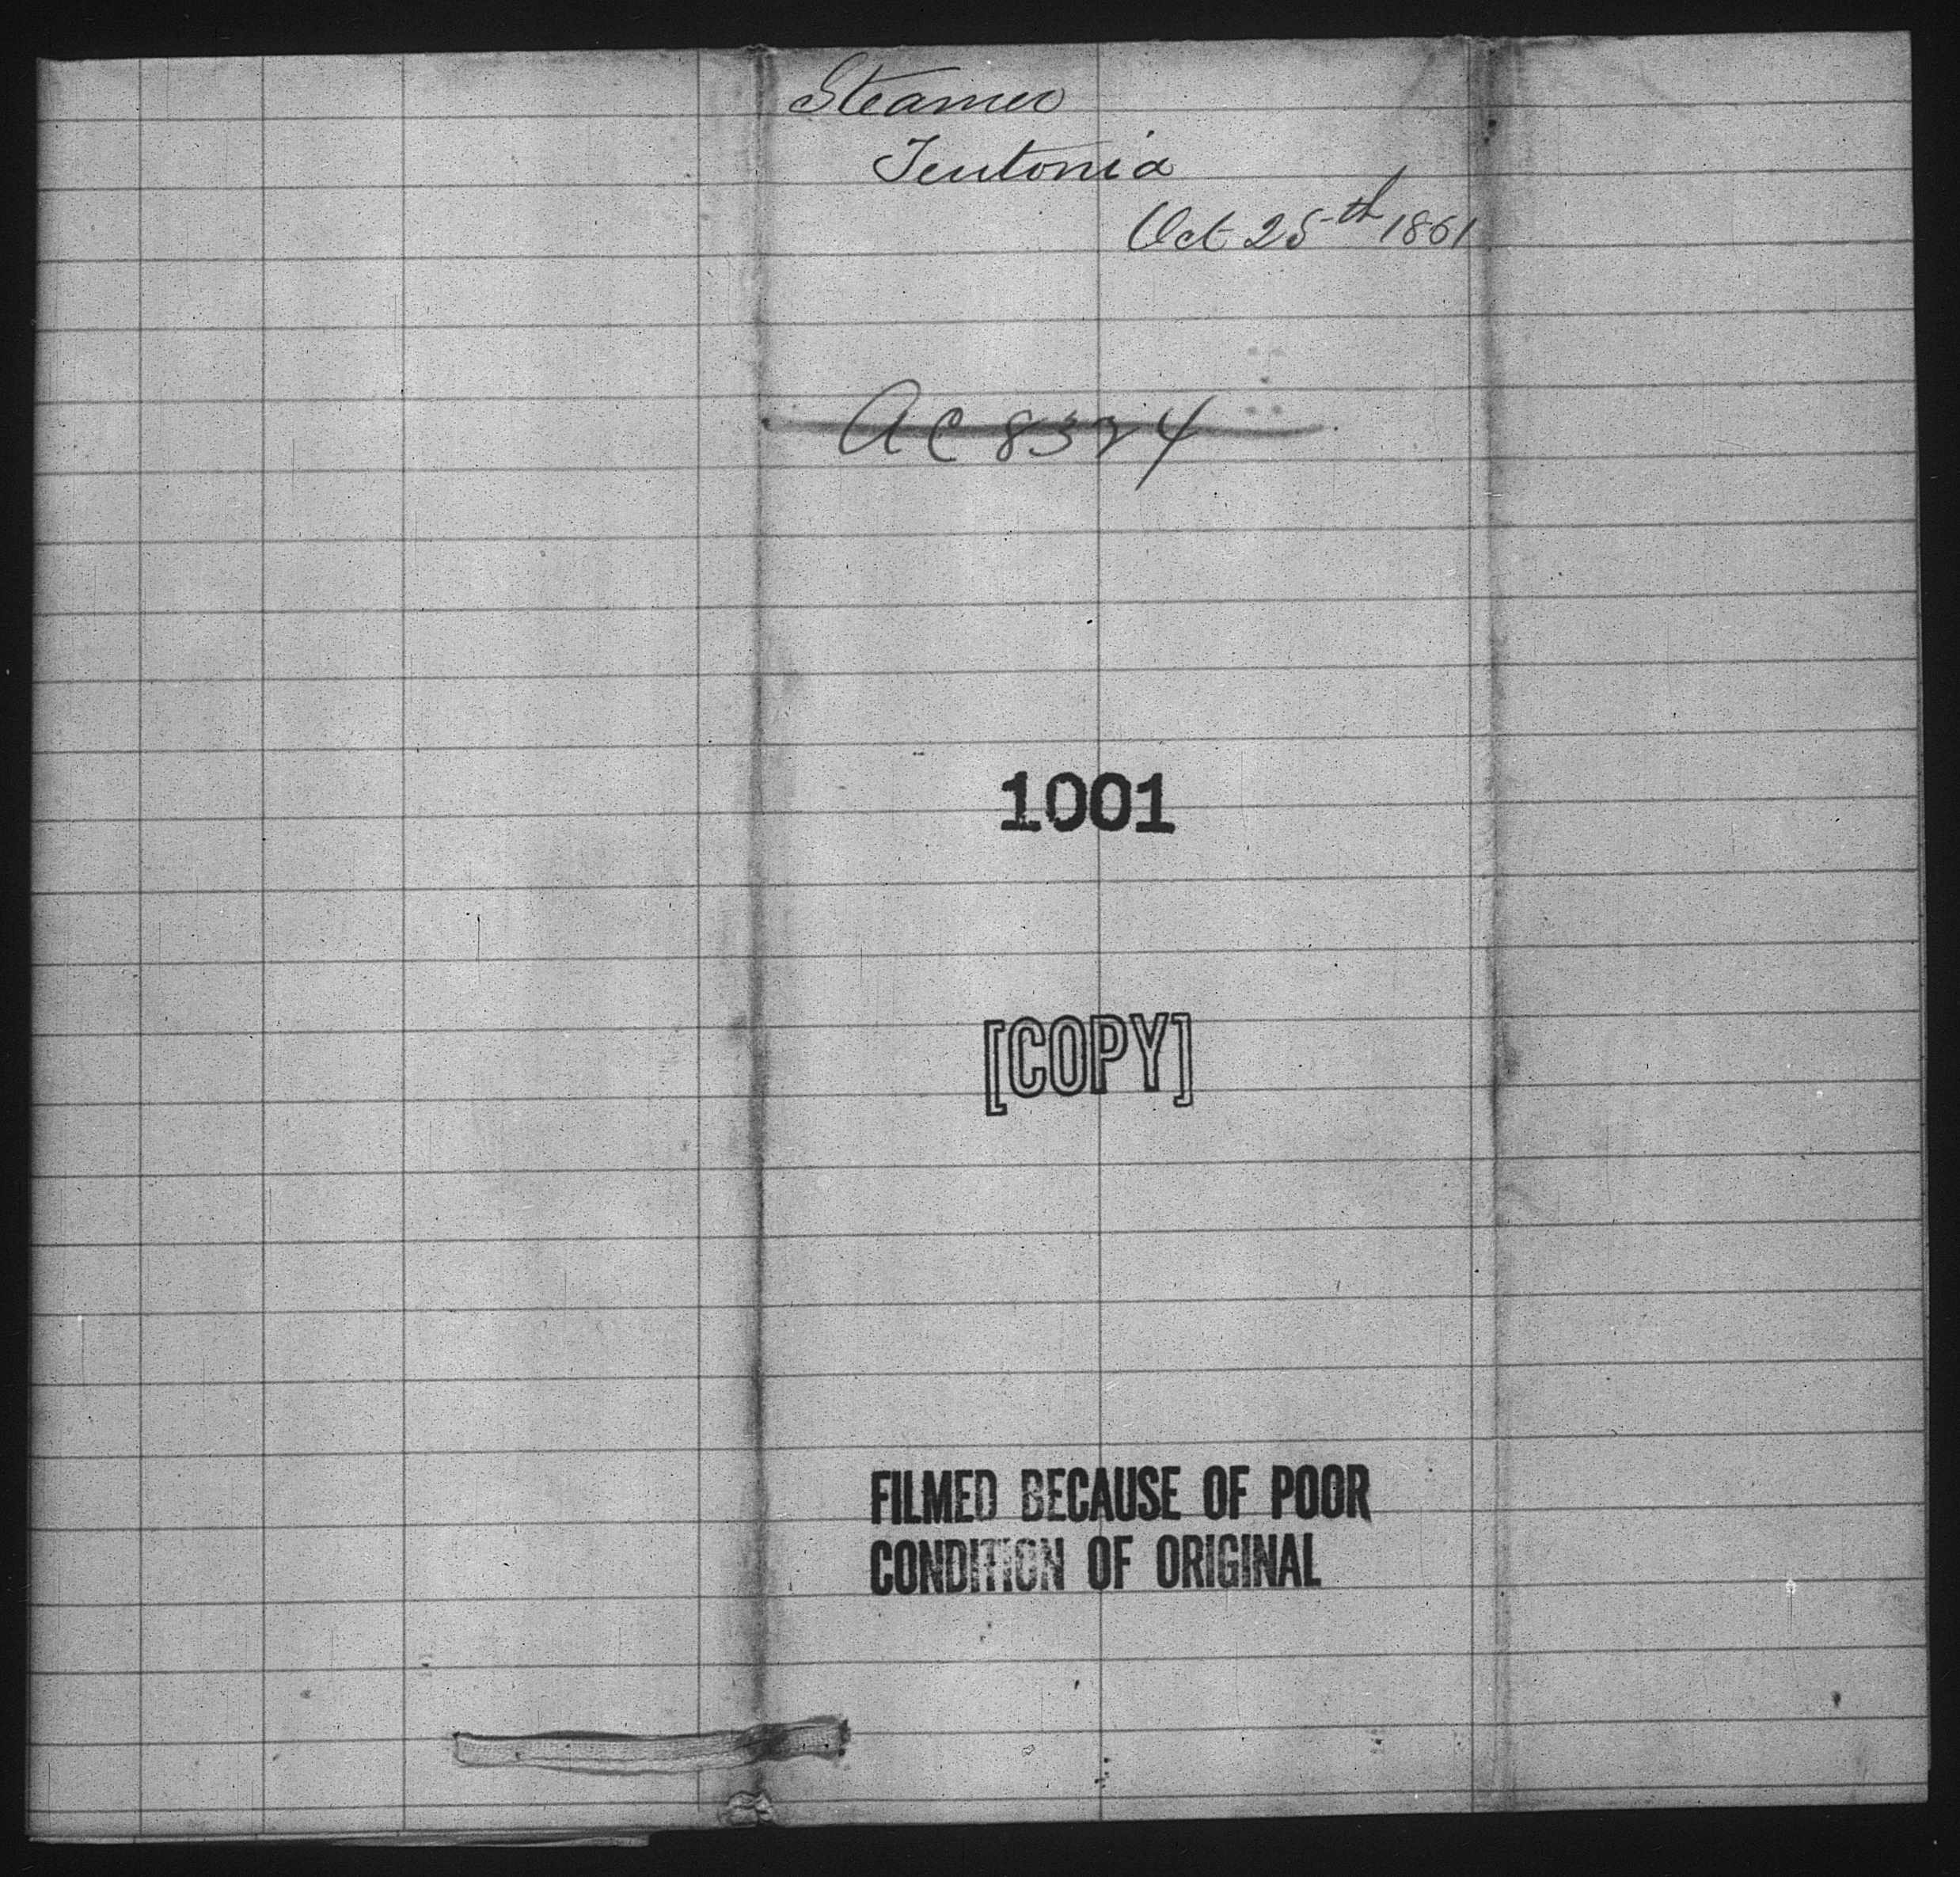 Steamer
Teutonia
Oct 25th 1861
AC 8324
1001
[COPY]
FILMED BECAUSE OF POOR
CONDITION OF ORIGINAL